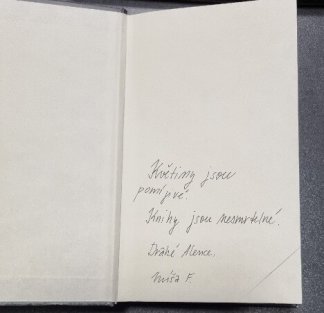 Květiny jsou
pomíjivé.
Knihy jsou nesmrtelné.
Drahé Alence.
Míša F.